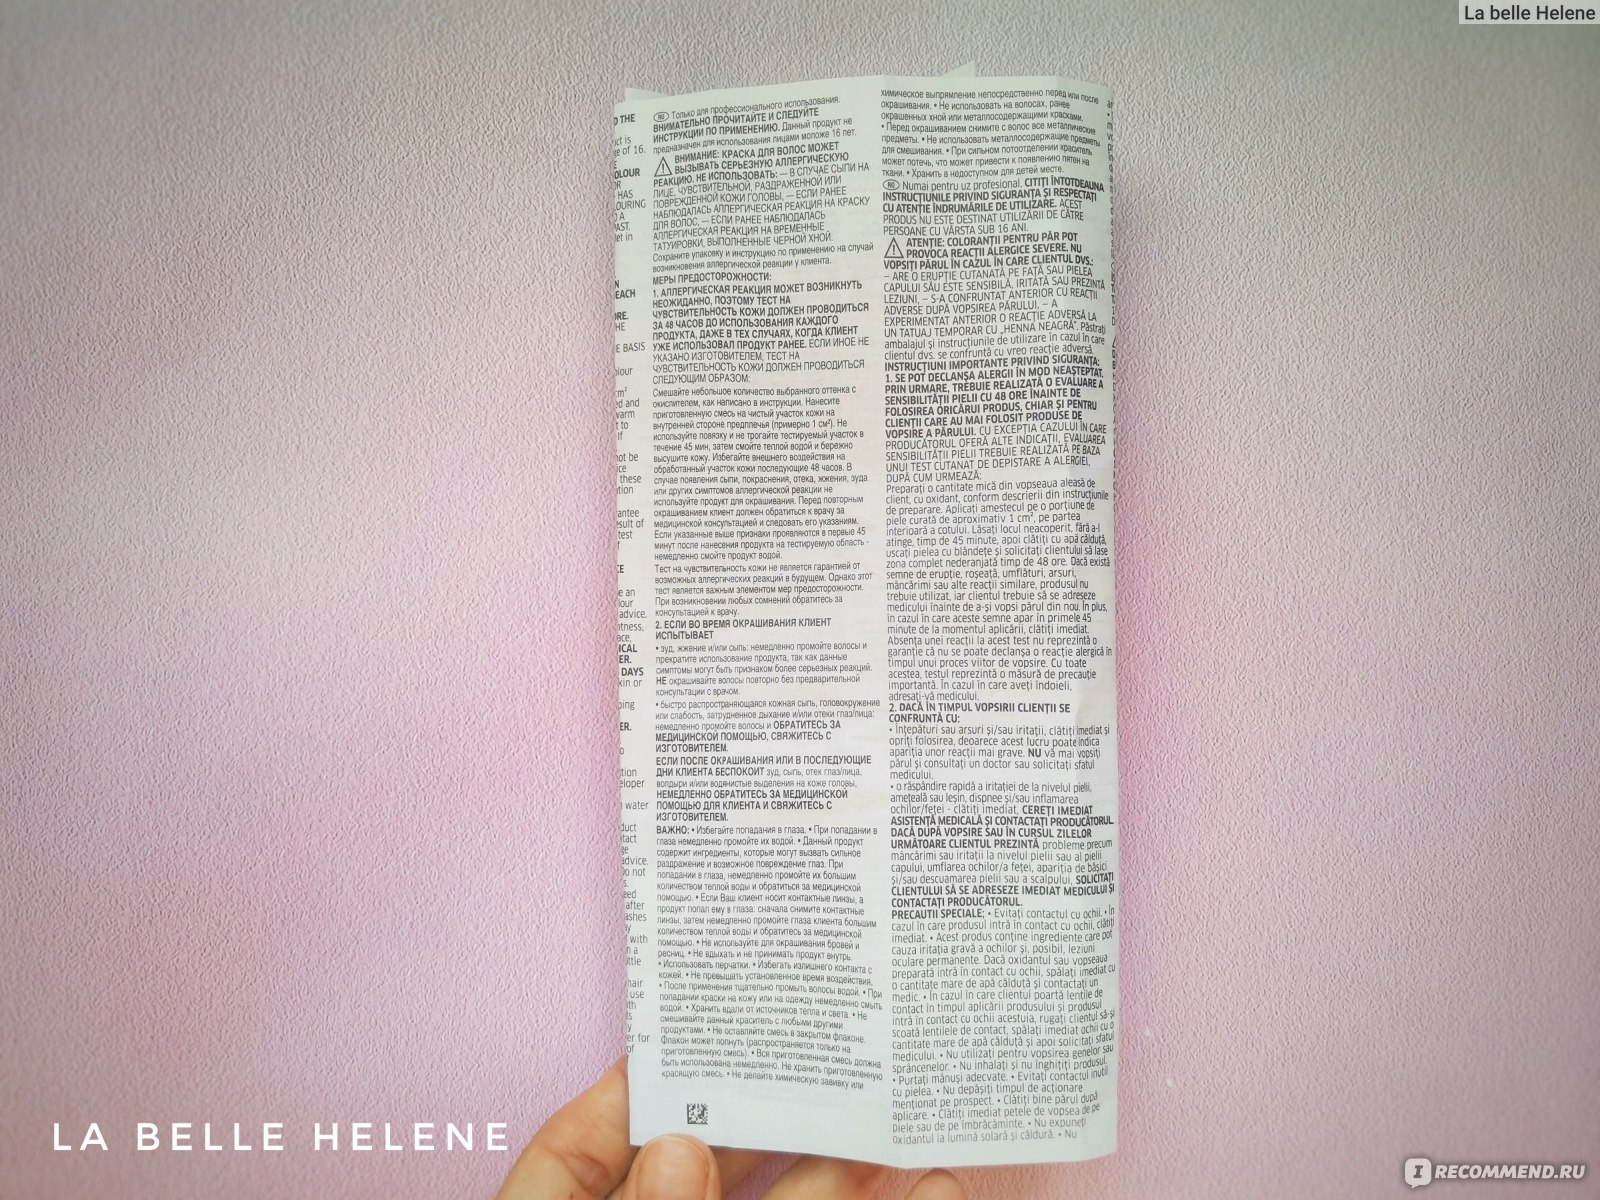 La belle Helene
D THE
uct is
e of 16.
OLOUR
OR
HAS
OURING
D A
AST.
let in
N
EACH
ORE.
HE
E BASIS
olour
cm²
ed and
warm
t to
If
not be
ice
these
ation
rantee
esult of
test
f
CE
e an
lour
advice.
htness,
ace,
ICAL
ER.
DAYS
kin or
ping
ER.
o
tion
eloper
n water
duct
tact
ge
advice.
Do not
s.
eed
after
ashes
y
f with
n a
ttle
hair
use
ith
ds
y
er for
of
RU Только для профессионального использования.
ВНИМАТЕЛЬНО ПРОЧИТАЙТЕ И СЛЕДУЙТЕ
ИНСТРУКЦИИ ПО ПРИМЕНЕНИЮ. Данный продукт не
предназначен для использования лицами моложе 16 лет.
ВНИМАНИЕ: КРАСКА ДЛЯ ВОЛОС МОЖЕТ
ВЫЗЫВАТЬ СЕРЬЕЗНУЮ АЛЛЕРГИЧЕСКУЮ
РЕАКЦИЮ. НЕ ИСПОЛЬЗОВАТЬ: — В СЛУЧАЕ СЫПИ НА
ЛИЦЕ, ЧУВСТВИТЕЛЬНОЙ, РАЗДРАЖЕННОЙ ИЛИ
ПОВРЕЖДЕННОЙ КОЖИ ГОЛОВЫ, — ЕСЛИ РАНЕЕ
НАБЛЮДАЛАСЬ АЛЛЕРГИЧЕСКАЯ РЕАКЦИЯ НА КРАСКУ
ДЛЯ ВОЛОС, — ЕСЛИ РАНЕЕ НАБЛЮДАЛАСЬ
АЛЛЕРГИЧЕСКАЯ РЕАКЦИЯ НА ВРЕМЕННЫЕ
ТАТУИРОВКИ, ВЫПОЛНЕННЫЕ ЧЕРНОЙ ХНОЙ.
Сохраните упаковку и инструкцию по применению на случай
возникновения аллергической реакции у клиента.
МЕРЫ ПРЕДОСТОРОЖНОСТИ:
1. АЛЛЕРГИЧЕСКАЯ РЕАКЦИЯ МОЖЕТ ВОЗНИКНУТЬ
НЕОЖИДАННО, ПОЭТОМУ ТЕСТ НА
ЧУВСТВИТЕЛЬНОСТЬ КОЖИ ДОЛЖЕН ПРОВОДИТЬСЯ
ЗА 48 ЧАСОВ ДО ИСПОЛЬЗОВАНИЯ КАЖДОГО
ПРОДУКТА, ДАЖЕ В ТЕХ СЛУЧАЯХ, КОГДА КЛИЕНТ
УЖЕ ИСПОЛЬЗОВАЛ ПРОДУКТ РАНЕЕ. ЕСЛИ ИНОЕ НЕ
УКАЗАНО ИЗГОТОВИТЕЛЕМ, ТЕСТ НА
ЧУВСТВИТЕЛЬНОСТЬ КОЖИ ДОЛЖЕН ПРОВОДИТЬСЯ
СЛЕДУЮЩИМ ОБРАЗОМ:
Смешайте небольшое количество выбранного оттенка с
окислителем, как написано в инструкции. Нанесите
приготовленную смесь на чистый участок кожи на
внутренней стороне предплечья (примерно 1 см²). Не
используйте повязку и не трогайте тестируемый участок в
течение 45 мин, затем смойте теплой водой и бережно
высушите кожу. Избегайте внешнего воздействия на
обработанный участок кожи последующие 48 часов. В
случае появления сыпи, покраснения, отека, жжения, зуда
или других симптомов аллергической реакции не
используйте продукт для окрашивания. Перед повторным
окрашиванием клиент должен обратиться к врачу за
медицинской консультацией и следовать его указаниям.
Если указанные выше признаки проявляются в первые 45
минут после нанесения продукта на тестируемую область -
немедленно смойте продукт водой.
Тест на чувствительность кожи не является гарантией от
возможных аллергических реакций в будущем. Однако этот
тест является важным элементом мер предосторожности.
При возникновении любых сомнений обратитесь за
консультацией к врачу.
2. ЕСЛИ ВО ВРЕМЯ ОКРАШИВАНИЯ КЛИЕНТ
ИСПЫТЫВАЕТ
• зуд, жжение и/или сыпь: немедленно промойте волосы и
прекратите использование продукта, так как данные
симптомы могут быть признаком более серьезных реакций.
НЕ окрашивайте волосы повторно без предварительной
консультации с врачом.
• быстро распространяющаяся кожная сыпь, головокружение
или слабость, затрудненное дыхание и/или отеки глаз/лица:
немедленно промойте волосы и ОБРАТИТЕСЬ ЗА
МЕДИЦИНСКОЙ ПОМОЩЬЮ, СВЯЖИТЕСЬ С
ИЗГОТОВИТЕЛЕМ.
ЕСЛИ ПОСЛЕ ОКРАШИВАНИЯ ИЛИ В ПОСЛЕДУЮЩИЕ
ДНИ КЛИЕНТА БЕСПОКОИТ зуд, сыпь, отек глаз/лица,
волдыри и/или водянистые выделения на коже головы,
НЕМЕДЛЕННО ОБРАТИТЕСЬ ЗА МЕДИЦИНСКОЙ
ПОМОЩЬЮ ДЛЯ КЛИЕНТА И СВЯЖИТЕСЬ С
ИЗГОТОВИТЕЛЕМ.
ВАЖНО: • Избегайте попадания в глаза. • При попадании в
глаза немедленно промойте их водой. • Данный продукт
содержит ингредиенты, которые могут вызвать сильное
раздражение и возможное повреждение глаз. При
попадании в глаза, немедленно промойте их большим
количеством теплой воды и обратитесь за медицинской
помощью. • Если Ваш клиент носит контактные линзы, а
продукт попал ему в глаза: сначала снимите контактные
линзы, затем немедленно промойте глаза клиента большим
количеством теплой воды и обратитесь за медицинской
помощью. • Не используйте для окрашивания бровей и
ресниц. • Не вдыхать и не принимать продукт внутрь.
• Использовать перчатки. • Избегать излишнего контакта с
кожей. • Не превышать установленное время воздействия.
• После применения тщательно промыть волосы водой. • При
попадании краски на кожу или на одежду немедленно смыть
водой. • Хранить вдали от источников тепла и света. • Не
смешивайте данный краситель с любыми другими
продуктами. • Не оставляйте смесь в закрытом флаконе.
Флакон может лопнуть (распространяется только на
приготовленную смесь). • Вся приготовленная смесь должна
быть использована немедленно. Не хранить приготовленную
красящую смесь. • Не делайте химическую завивку или
химическое выпрямление непосредственно перед или после
окрашивания. • Не использовать на волосах, ранее
окрашенных хной или металлосодержащими красками.
• Перед окрашиванием снимите с волос все металлические
предметы. • Не использовать металлосодержащие предметы
для смешивания. • При сильном потоотделении краситель
может потечь, что может привести к появлению пятен на
ткани. • Хранить в недоступном для детей месте.
RO Numai pentru uz profesional. CITIȚI ÎNTOTDEAUNA
INSTRUCȚIUNILE PRIVIND SIGURANȚA ȘI RESPECTAȚI
CU ATENȚIE ÎNDRUMĂRILE DE UTILIZARE. ACEST
PRODUS NU ESTE DESTINAT UTILIZĂRII DE CĂTRE
PERSOANE CU VÂRSTA SUB 16 ANI.
ATENȚIE: COLORANȚII PENTRU PĂR POT
PROVOCA REACȚII ALERGICE SEVERE. NU
VOPSIȚI PĂRUL ÎN CAZUL ÎN CARE CLIENTUL DVS.:
– ARE O ERUPȚIE CUTANATĂ PE FAȚĂ SAU PIELEA
CAPULUI SĂU ESTE SENSIBILĂ, IRITATĂ SAU PREZINTĂ
LEZIUNI, – S-A CONFRUNTAT ANTERIOR CU REACȚII
ADVERSE DUPĂ VOPSIREA PĂRULUI, – A
EXPERIMENTAT ANTERIOR O REACȚIE ADVERSĂ LA
UN TATUAJ TEMPORAR CU „HENNA NEAGRĂ”. Păstrați
ambalajul și instrucțiunile de utilizare în cazul în care
clientul dvs. se confruntă cu vreo reacție adversă.
INSTRUCȚIUNI IMPORTANTE PRIVIND SIGURANȚA:
1. SE POT DECLANȘA ALERGII ÎN MOD NEAȘTEPTAT.
PRIN URMARE, TREBUIE REALIZATĂ O EVALUARE A
SENSIBILITĂȚII PIELII CU 48 ORE ÎNAINTE DE
FOLOSIREA ORICĂRUI PRODUS, CHIAR ȘI PENTRU
CLIENȚII CARE AU MAI FOLOSIT PRODUSE DE
VOPSIRE A PĂRULUI. CU EXCEPȚIA CAZULUI ÎN CARE
PRODUCĂTORUL OFERĂ ALTE INDICAȚII, EVALUAREA
SENSIBILITĂȚII PIELII TREBUIE REALIZATĂ PE BAZA
UNUI TEST CUTANAT DE DEPISTARE A ALERGIEI,
DUPĂ CUM URMEAZĂ:
Preparați o cantitate mică din vopseaua aleasă de
client, cu oxidant, conform descrierii din instrucțiunile
de preparare. Aplicați amestecul pe o porțiune de
piele curată de aproximativ 1 cm², pe partea
interioară a cotului. Lăsați locul neacoperit, fără a-l
atinge, timp de 45 minute, apoi clătiți cu apă călduță,
uscați pielea cu blândețe și solicitați clientului să lase
zona complet nederanjată timp de 48 ore. Dacă există
semne de erupție, roșeață, umflături, arsuri,
mâncărimi sau alte reacții similare, produsul nu
trebuie utilizat, iar clientul trebuie să se adreseze
medicului înainte de a-și vopsi părul din nou. În plus,
în cazul în care aceste semne apar în primele 45
minute de la momentul aplicării, clătiți imediat.
Absența unei reacții la acest test nu reprezintă o
garanție că nu se poate declanșa o reacție alergică în
timpul unui proces viitor de vopsire. Cu toate
acestea, testul reprezintă o măsură de precauție
importantă. În cazul în care aveți îndoieli,
adresați-vă medicului.
2. DACĂ ÎN TIMPUL VOPSIRII CLIENȚII SE
CONFRUNTĂ CU:
• Înțepături sau arsuri și/sau iritații, clătiți imediat și
opriți folosirea, deoarece acest lucru poate indica
apariția unor reacții mai grave. NU vă mai vopsiți
părul și consultați un doctor sau solicitați sfatul
medicului.
• o răspândire rapidă a iritației de la nivelul pielii,
amețeală sau leșin, dispnee și/sau inflamarea
ochilor/feței - clătiți imediat, CEREȚI IMEDIAT
ASISTENȚĂ MEDICALĂ ȘI CONTACTAȚI PRODUCĂTORUL.
DACĂ DUPĂ VOPSIRE SAU ÎN CURSUL ZILELOR
URMĂTOARE CLIENTUL PREZINTĂ probleme precum
mâncărimi sau iritații la nivelul pielii sau al pielii
capului, umflarea ochilor/a feței, apariția de bășici
și/sau descuamarea pielii sau a scalpului, SOLICITAȚI
CLIENTULUI SĂ SE ADRESEZE IMEDIAT MEDICULUI ȘI
CONTACTAȚI PRODUCĂTORUL.
PRECAUȚII SPECIALE: • Evitați contactul cu ochii. • În
cazul în care produsul intră în contact cu ochii, clătiți
imediat. • Acest produs conține ingrediente care pot
cauza iritația gravă a ochilor și, posibil, leziuni
oculare permanente. Dacă oxidantul sau vopseaua
preparată intră în contact cu ochii, spălați imediat cu
o cantitate mare de apă călduță și contactați un
medic. • În cazul în care clientul poartă lentile de
contact în timpul aplicării produsului și produsul
intră în contact cu ochii acestuia, rugați clientul să-și
scoată lentilele de contact, spălați imediat ochii cu o
cantitate mare de apă călduță și apoi solicitați sfatul
medicului. • Nu utilizați pentru vopsirea genelor sau
sprâncenelor. • Nu inhalați și nu înghițiți produsul.
• Purtați mănuși adecvate. • Evitați contactul inutil
cu pielea. • Nu depășiți timpul de acționare
menționat pe prospect. • Clătiți bine părul după
aplicare. • Clătiți imediat petele de vopsea de pe
piele sau de pe îmbrăcăminte. • Nu expuneți
oxidantul la lumină solară și căldură. • Nu
LA BELLE HELENE
IRECOMMEND.RU